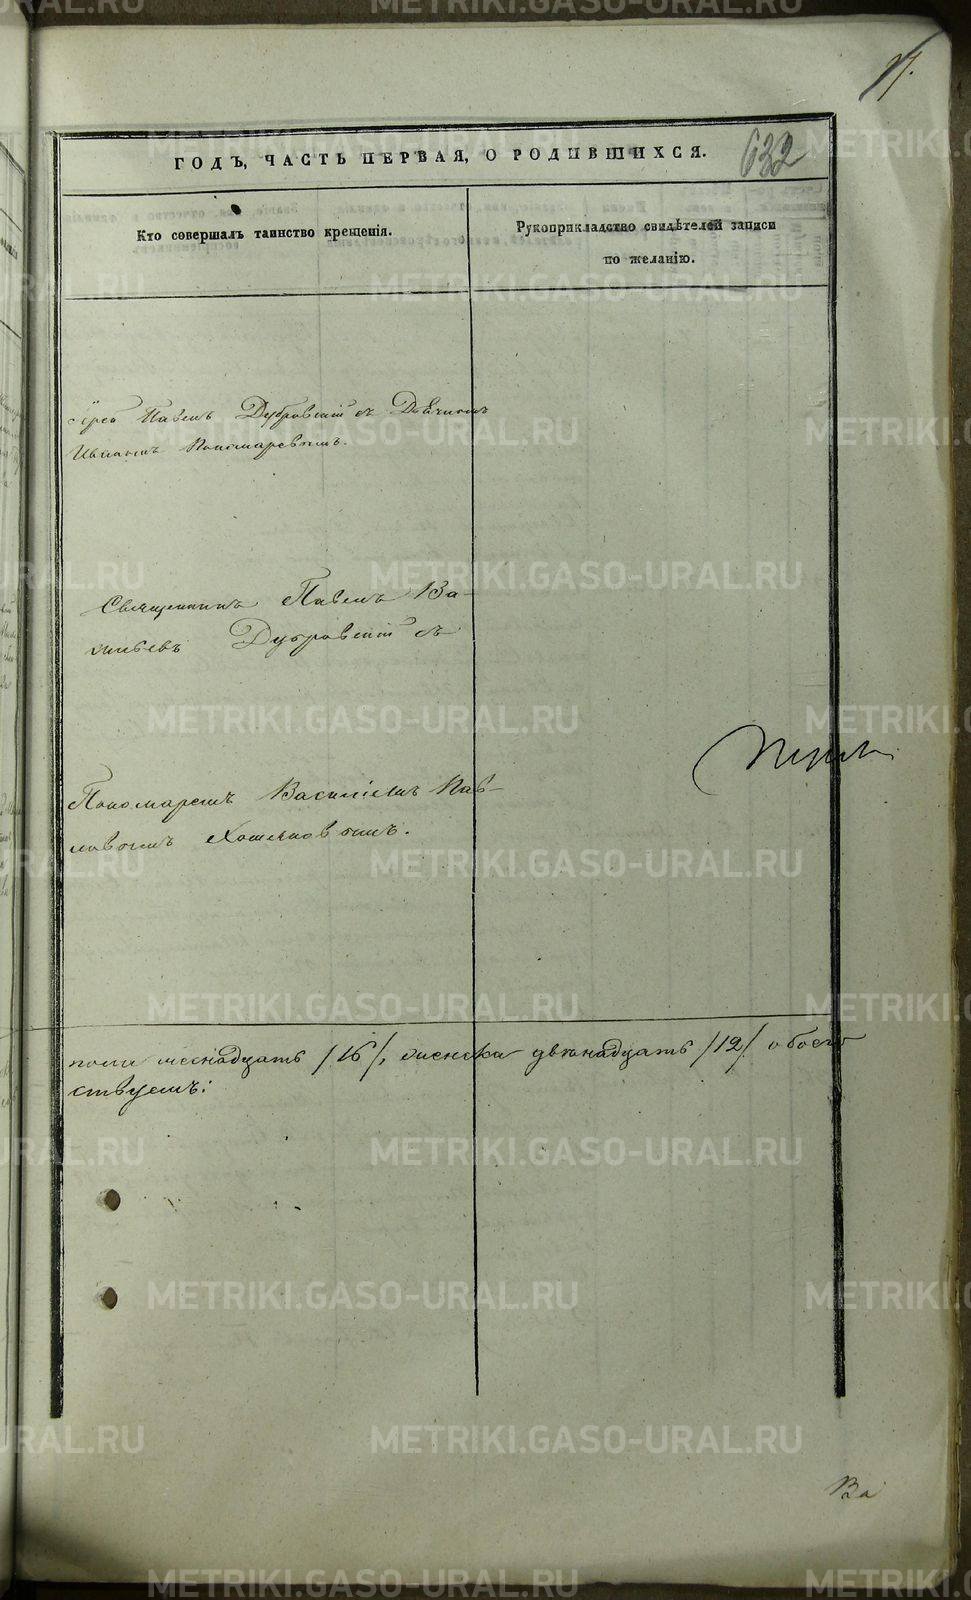 632
ГОДЪ, ЧАСТЬ ПЕРВАЯ, О РОДИВШИХСЯ.
Кто совершалъ таинство крещенія.
Рукоприкладство свидѣтелей записи
по желанію.
Павелъ Дубровскій съ Дьячкомъ
Иваномъ Пономаревымъ.
Священникъ Павелъ Ва-
сильевъ Дубровскій съ
Пономаремъ Василіемъ Пав-
ловымъ Хомяковымъ.
пола шеснадцать /16/, женска двѣнадцать /12/ обоего
ствуемъ:
Ва
METRIKI.GASO-URAL.RU